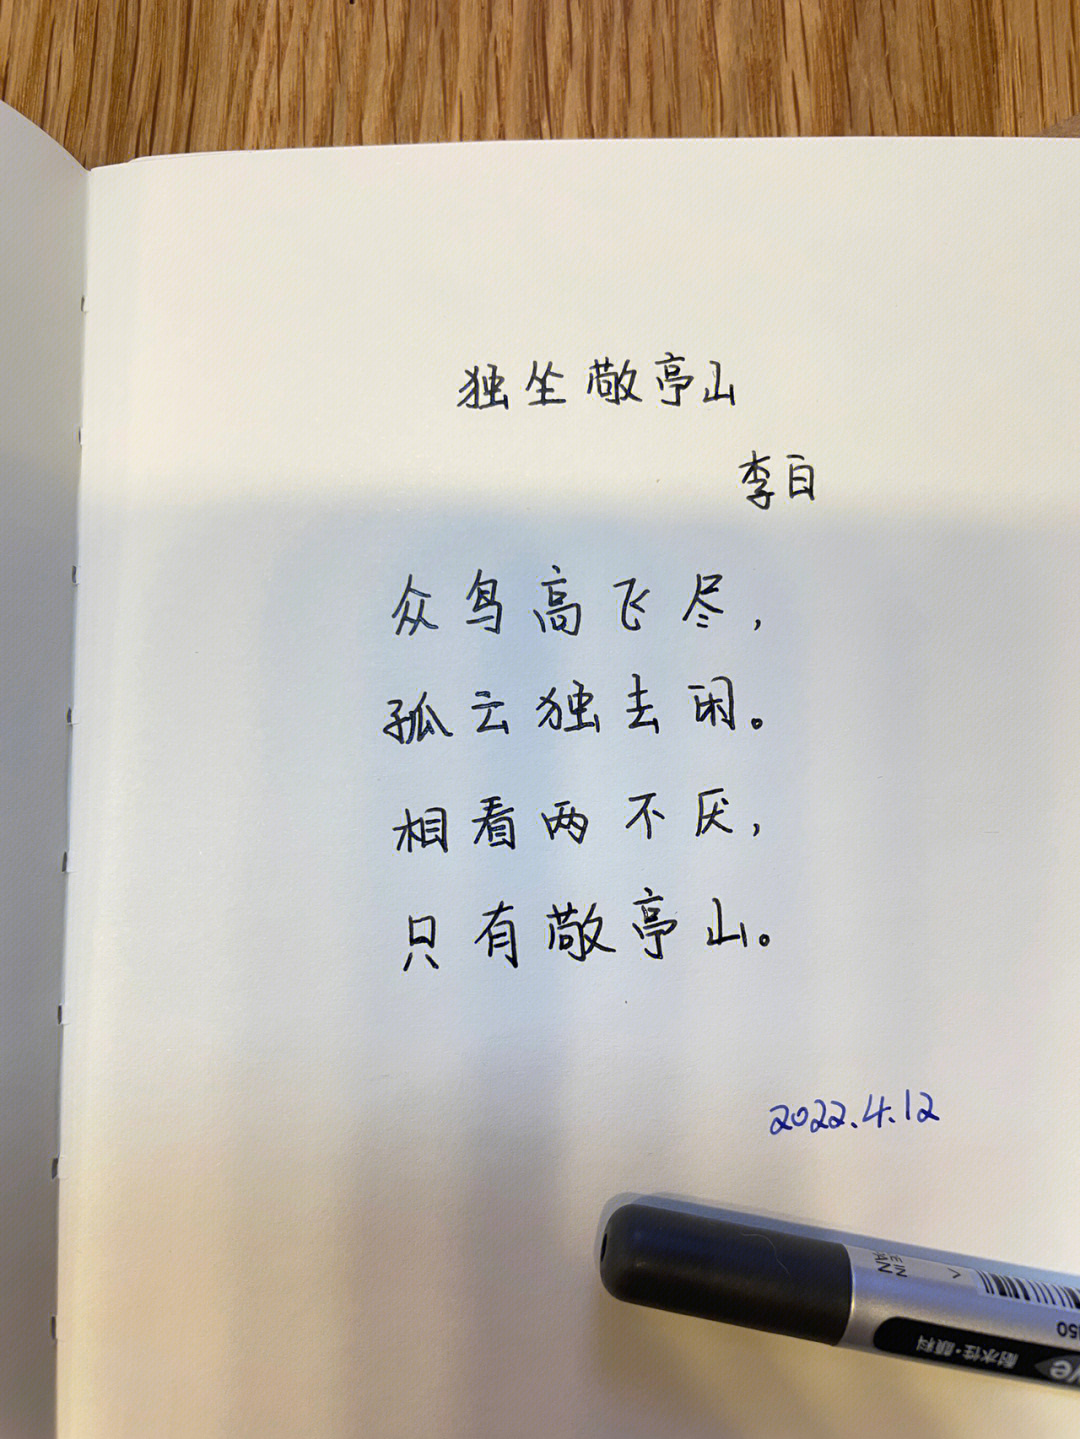 独坐敬亭山
李白
众鸟高飞尽，
孤云独去闲。
相看两不厌，
只有敬亭山。
2022.4.12
耐水性·顔料